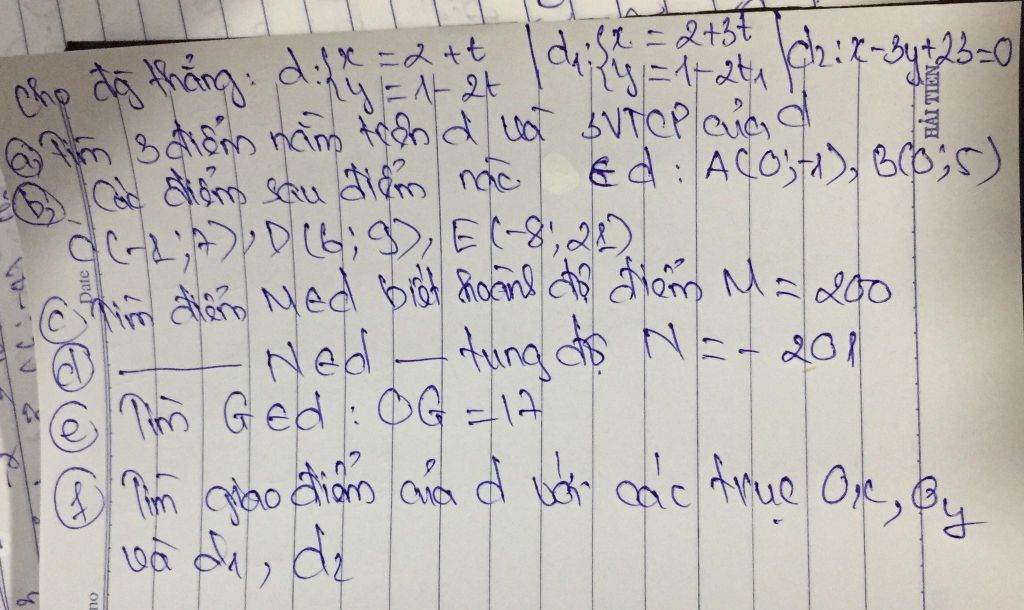 Cho đg thẳng: d:{x = 2 + t y = 1 - 2t | d1:{x = 2+3t y = 1 - 2t1 | d2: x - 3y + 23 = 0
a) Tìm 3 điểm nằm trên d và 3VTCP của d
b) Các điểm sau điểm nào ∈ d: A(0;-1), B(0;5)
C(-1;7), D(6;9), E(-8;21)
c) Tìm điểm M∈d biết hoành độ điểm M = 200
d) —— N∈d — tung độ N = - 201
e) Tìm G∈d: OG = 17
f) Tìm giao điểm của d với các trục Ox, Oy
và d1, d2
HẢI TIẾN
Date
no